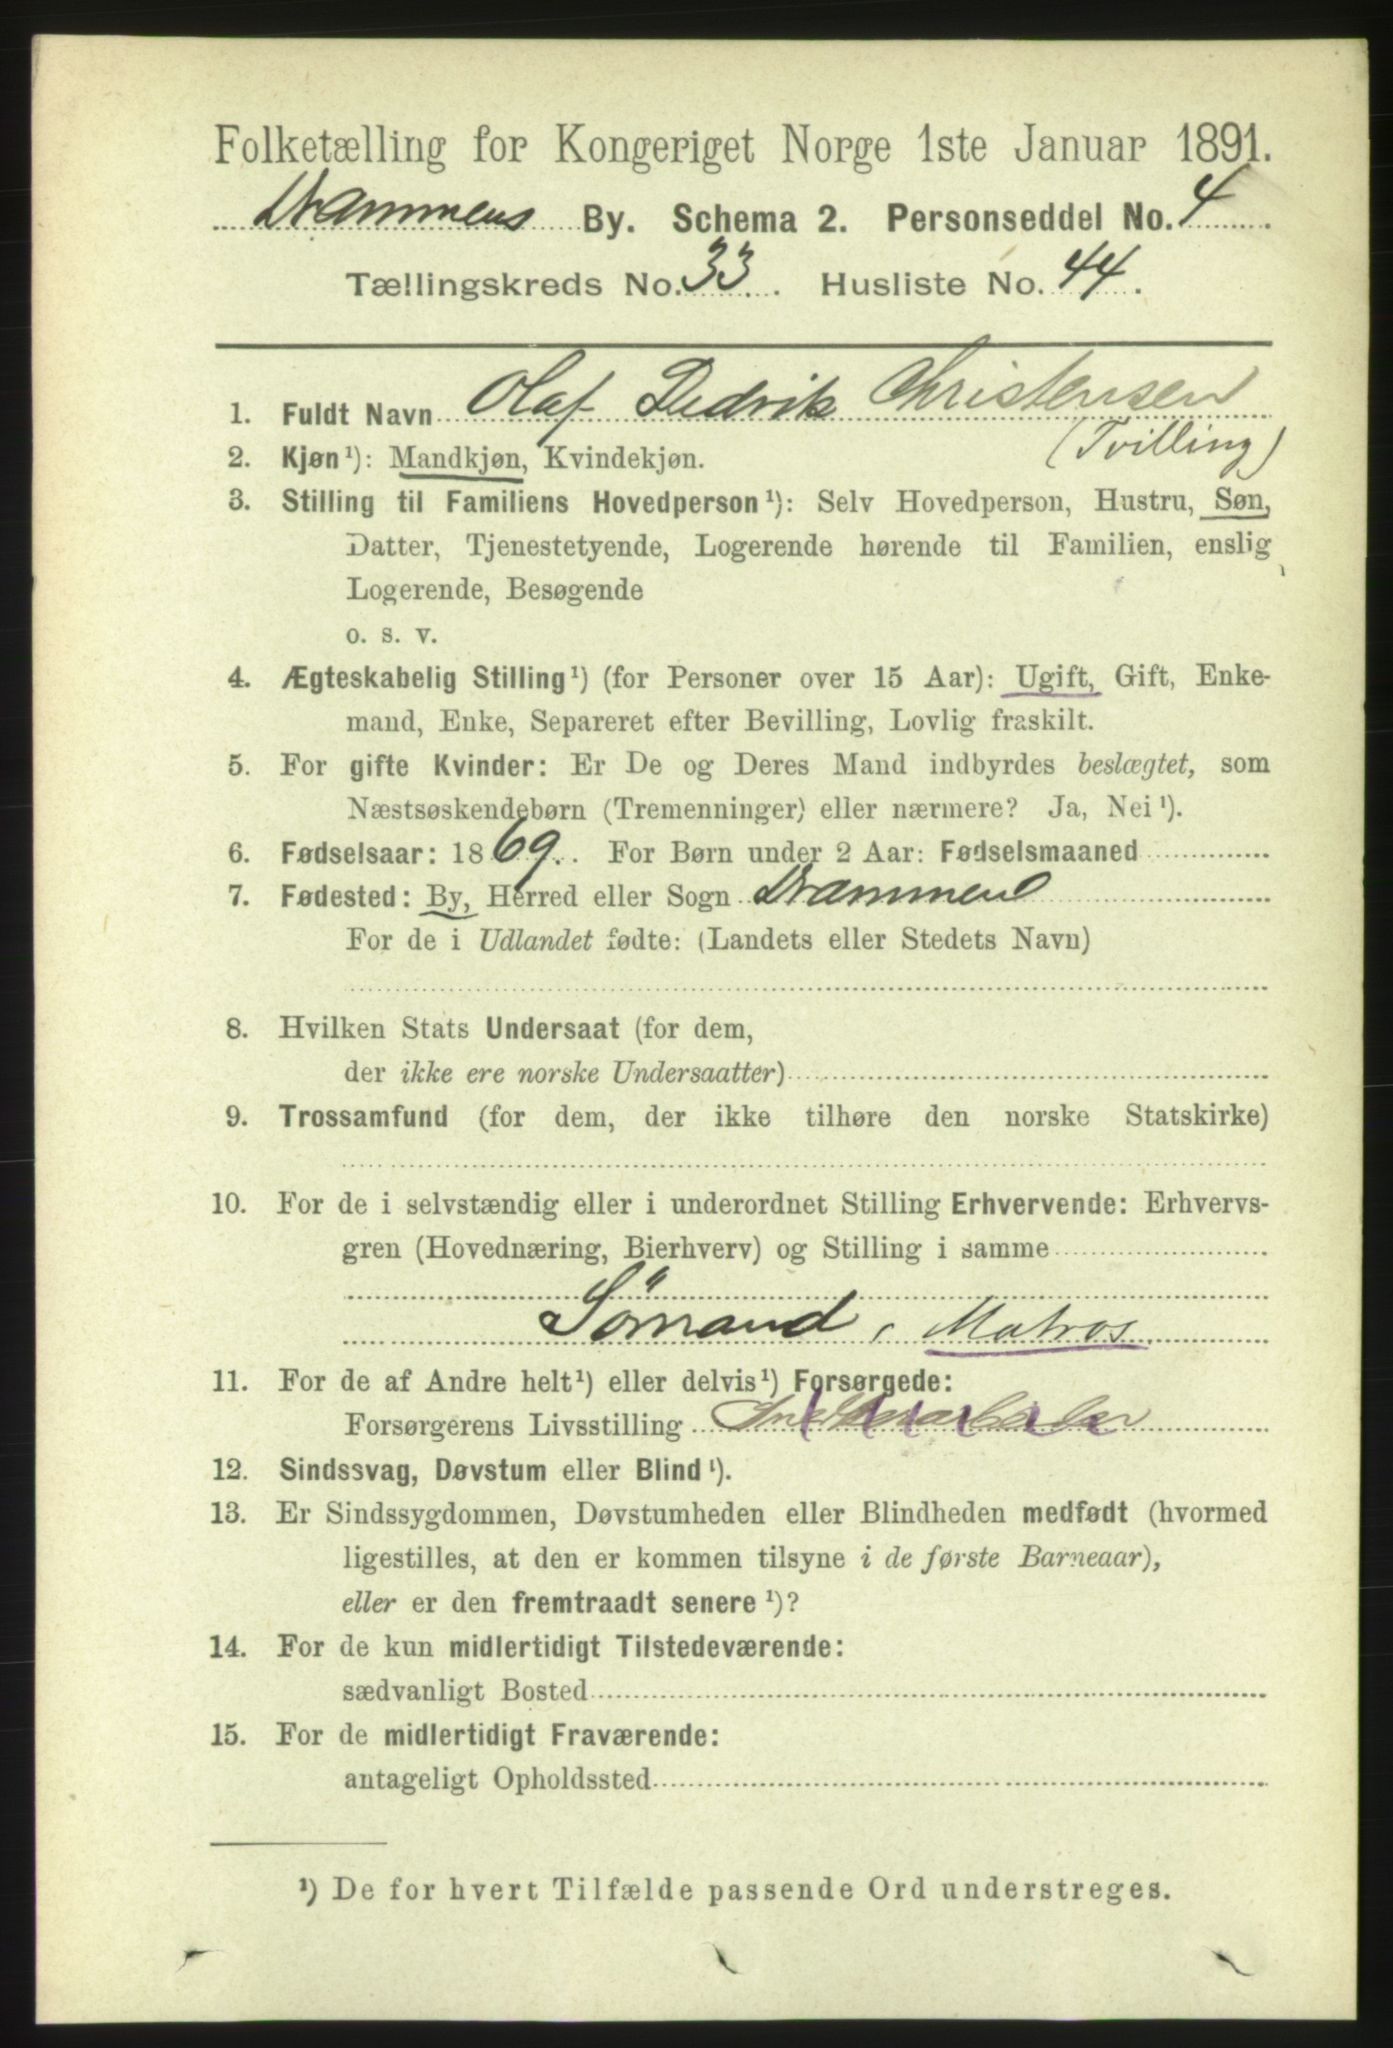 Folketælling for Kongeriget Norge 1ste Januar 1891.
Drammens By. Schema 2. Personseddel No. 4
Tællingskreds No. 33. Husliste No. 44.
1. Fuldt Navn Olaf Dedrik Christensen
(Tvilling)
2. Kjøn¹): Mandkjøn, Kvindekjøn.
3. Stilling til Familiens Hovedperson¹): Selv Hovedperson, Hustru, Søn,
Datter, Tjenestetyende, Logerende hørende til Familien, enslig
Logerende, Besøgende
o. s. v.
4. Ægteskabelig Stilling¹) (for Personer over 15 Aar): Ugift, Gift, Enke-
mand, Enke, Separeret efter Bevilling, Lovlig fraskilt.
5. For gifte Kvinder: Er De og Deres Mand indbyrdes beslægtet, som
Næstsøskendebørn (Tremenninger) eller nærmere? Ja, Nei¹).
6. Fødselsaar: 1869. For Børn under 2 Aar: Fødselsmaaned
7. Fødested: By, Herred eller Sogn Drammen
For de i Udlandet fødte: (Landets eller Stedets Navn)
8. Hvilken Stats Undersaat (for dem,
der ikke ere norske Undersaatter)
9. Trossamfund (for dem, der ikke tilhøre den norske Statskirke)
10. For de i selvstændig eller i underordnet Stilling Erhvervende: Erhvervs-
gren (Hovednæring, Bierhverv) og Stilling i samme
Sömand, Matros
11. For de af Andre helt¹) eller delvis¹) Forsørgede:
Forsørgerens Livsstilling
12. Sindssvag, Døvstum eller Blind¹).
13. Er Sindssygdommen, Døvstumheden eller Blindheden medfødt (hvormed
ligestilles, at den er kommen tilsyne i de første Barneaar),
eller er den fremtraadt senere¹)?
14. For de kun midlertidigt Tilstedeværende:
sædvanligt Bosted
15. For de midlertidigt Fraværende:
antageligt Opholdssted
¹) De for hvert Tilfælde passende Ord understreges.